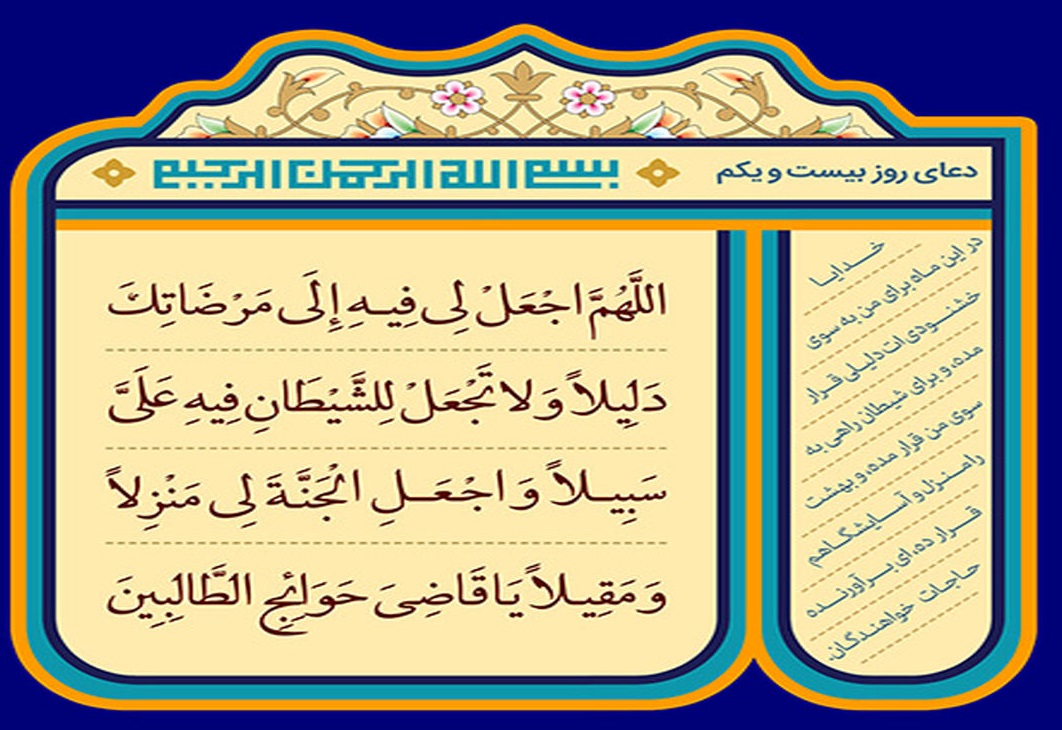 دعای روز بیست و یکم
بسم الله الرحمن الرحیم
اللَّهُمَّ اجْعَلْ لِی فِیهِ إِلَی مَرْضَاتِكَ
دَلِیلاً وَ لا تَجْعَلْ لِلشَّیْطَانِ فِیهِ عَلَیَّ
سَبِیلاً وَ اجْعَلِ الْجَنَّةَ لِی مَنْزِلاً
وَ مَقِیلاً یَا قَاضِیَ حَوَائِجِ الطَّالِبِینَ
خدایا
در این ماه برای من به سوی
خشنودی ات دلیلی قرار
مده، و برای شیطان راهی به
سوی من قرار مده، و بهشت
را منزل و آسایشگاهم
قرار ده، ای برآورنده
حاجات خواهندگان.